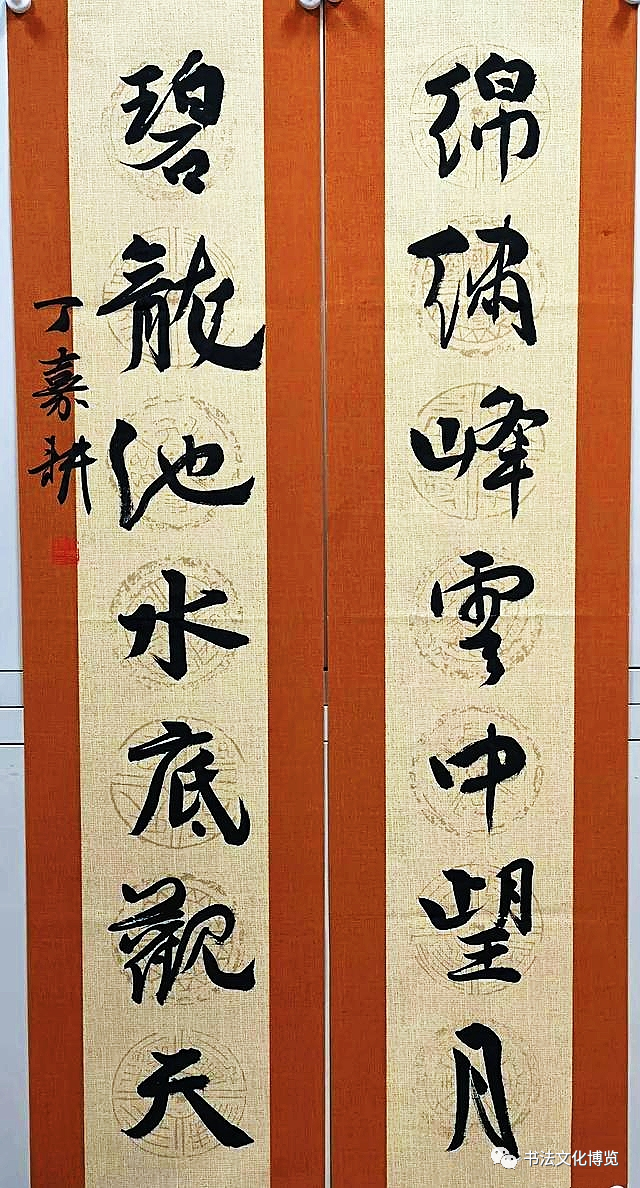 綿繡峰雲中望月
碧龍池水底觀天
丁嘉耕
书法文化博览